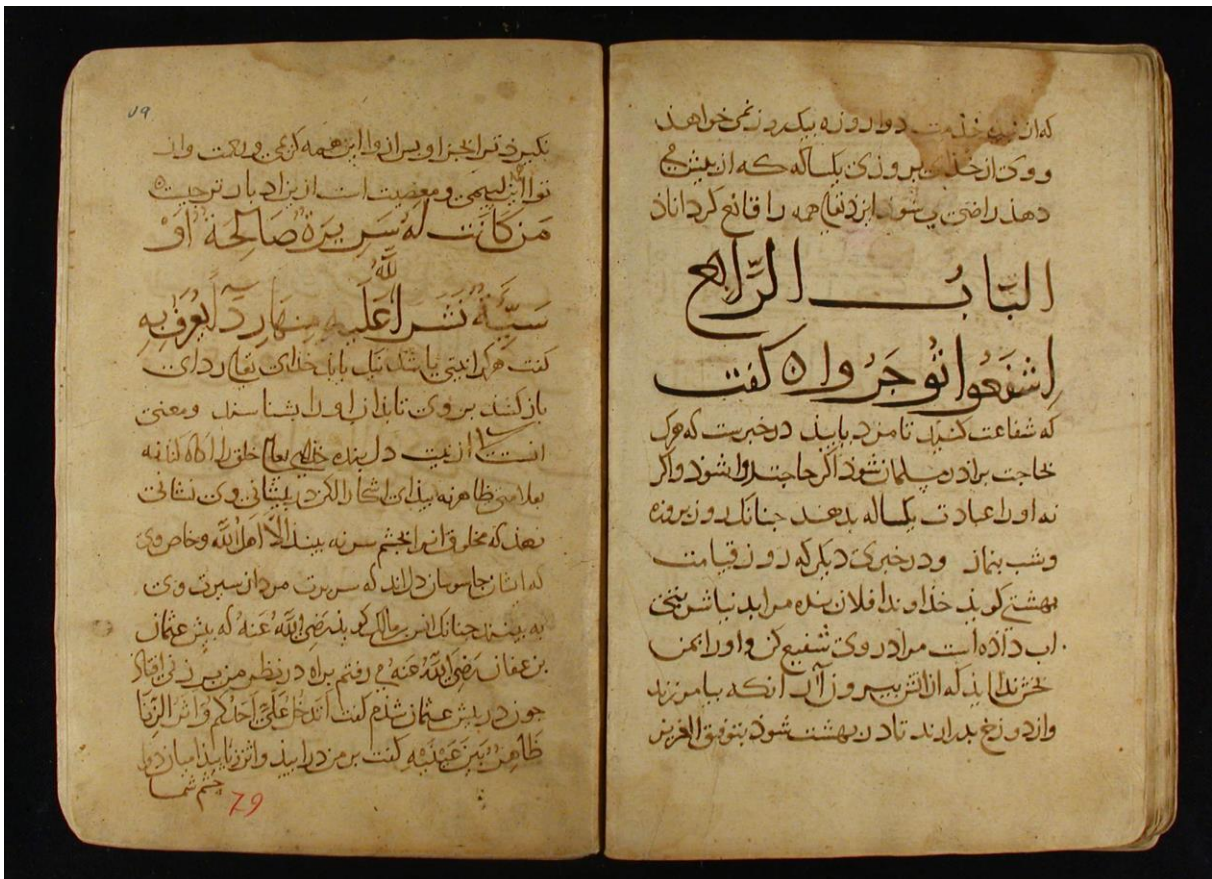 که از خذمت دوا روزه بیکروز نمی خواهد
ووی از خذای بروزی یکساله که از پیش می
دهذ راضی شود ایزد تعالی همه را قانع کرداناذ
البَابُ الرَّابع
اِشفَعُوا تُوجَرُوا ٥ كفت
که شفاعت کنید تا مزد یابید درخبرست که هرک
بحاجت براذر مسلمان شود اکر حاجتش روا شود واکر
نه اورا عبادت یکساله بدهند جنانک روز بروزه
وشب بنماز ودرخبری دیکر که روز قیامت
بهشتی کوید خذاوندا فلان بنده مرا بدنیا شربتی
اب داذه است مرا در وی شفیع کن واورا بمن
بخش ندا ایذ که از اتش بیرون آر انکه بیامرزند
واز دوزخ بدرارند تا در بهشت شوذ بتوفیق العزیز
٧٩
نکیرد ترا بجز او براند وا این همه کریمی و رفعت وان
تو این لییمی ومعصیت است از یزاد باد ترجیت
مَن كَانَت لَهُ سَرِيرَةٌ صَالِحَةٌ اَوْ
سَيِّئَةٌ نَشَرَ اللّٰهُ عَلَيهِ مِنهَا رِدَآءً يُعْرَفُ بِهِ
کفت هرکرا نیتی باشد نیک یا بد خذای تعالی ردای
باز کشد بر وی تا بذان اورا بشناسند ومعنی
انست از نیت دل بنده خذای تعالی خلق را اکاه کند نه
بعلامتی ظاهر نه بندای اشکارا لکن در پیشانی وی نشانی
نهذ که مخلوقان را بچشم سر نه بینند الّا اهل اللّٰه وخاص وی
که ایشان جاسوسان دل اند که سریرت مردان سیرت وی
به بینند جنانک انس مالک کوید رَضِیَ اللّٰهُ عَنهُ که پیش عثمان
بن عفان رَضِیَ اللّٰهُ عَنهُ می رفتم براه در نظر من بر زنی افتاذ
جون در پیش عثمان شذم کفت اَتَدخُلُ عَلَيَّ اَحَدُكُم وَاَثَرُ الزِّنَا
ظَاهِرٌ بَيْنَ عَيْنَيْهِ کفت بر من در ایید واثر زنا پیدا میان دو
چشم شما
79